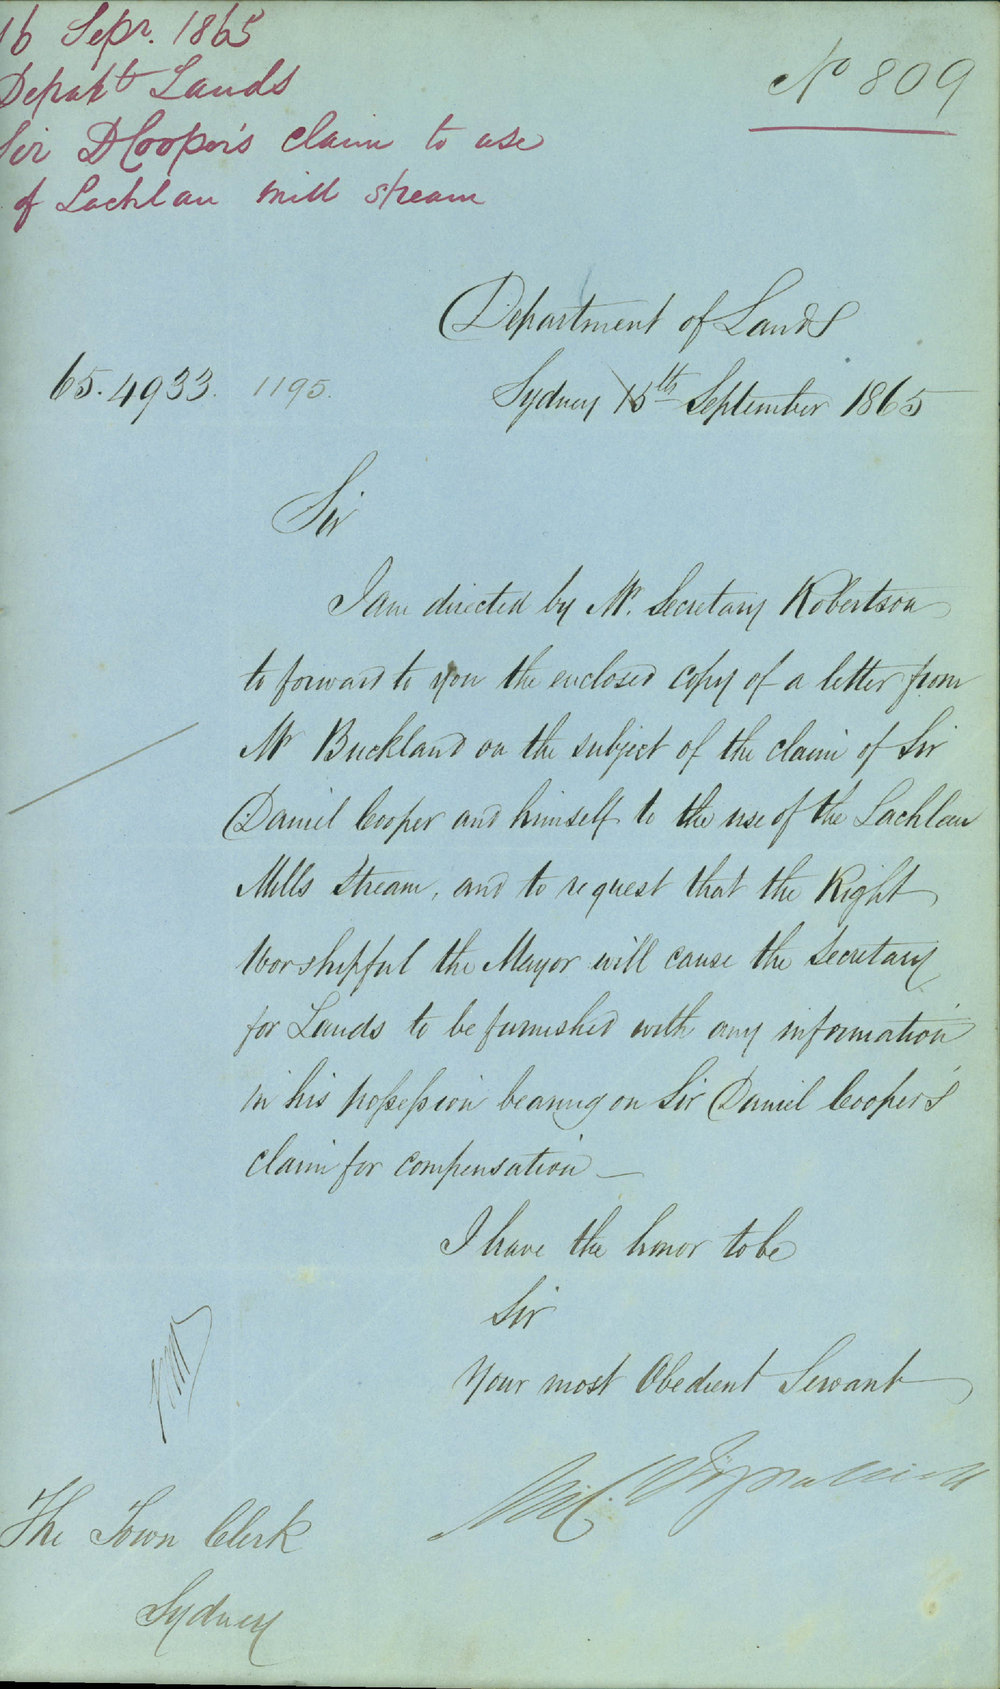 16 Sepr. 1865
Depart Lands
Sir D Cooper's claim to use
of Lachlan Mill stream
No 809
Department of Lands
65.4933. 1195.
Sydney 15th September 1865
Sir
I am directed by Mr. Secretary Robertson
to forward to you the enclosed copy of a letter from
Mr Buckland on the subject of the claim of Sir
Daniel Cooper and himself to the use of the Lachlan
Mills Stream, and to request that the Right
Worshipful the Mayor will cause the Secretary
for Lands to be furnished with any information
in his possession bearing on Sir Daniel Cooper's
claim for compensation —
I have the honor to be
Sir
Your most Obedient Servant
Mich Fitzpatrick
The Town Clerk
Sydney